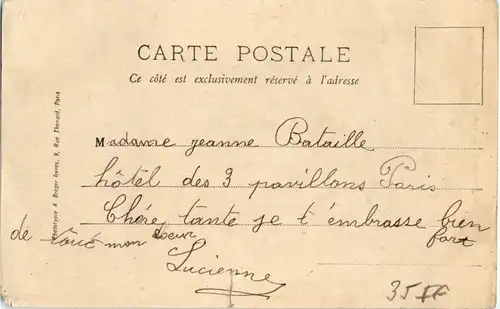 CARTE POSTALE
Ce côté est exclusivement réservé à l'adresse
Madame Jeanne Bataille
hôtel des 3 pavillons Paris
Chére tante je t'embrasse bien
fort
de tout mon coeur
Lucienne
35 FF
Phototypie A. Breger frères, 9, Rue Thénard, Paris